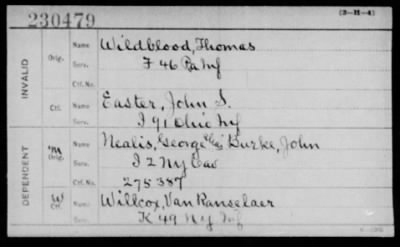 230479
(3-11-4)
INVALID
Orig.
Name Wildblood, Thomas
Serv. F 46 Pa Inf
Ctf. No.
Ctf.
Name Easter, John S.
Serv. I 91 Ohio Inf
DEPENDENT
M
Orig.
Name Nealis, George alias Burke, John
Serv. I 2 N.Y Cav
Ctf. No. 275387
W
Ctf.
Name Willcox, Van Ranselaer
Serv. K 49 N.Y. Inf